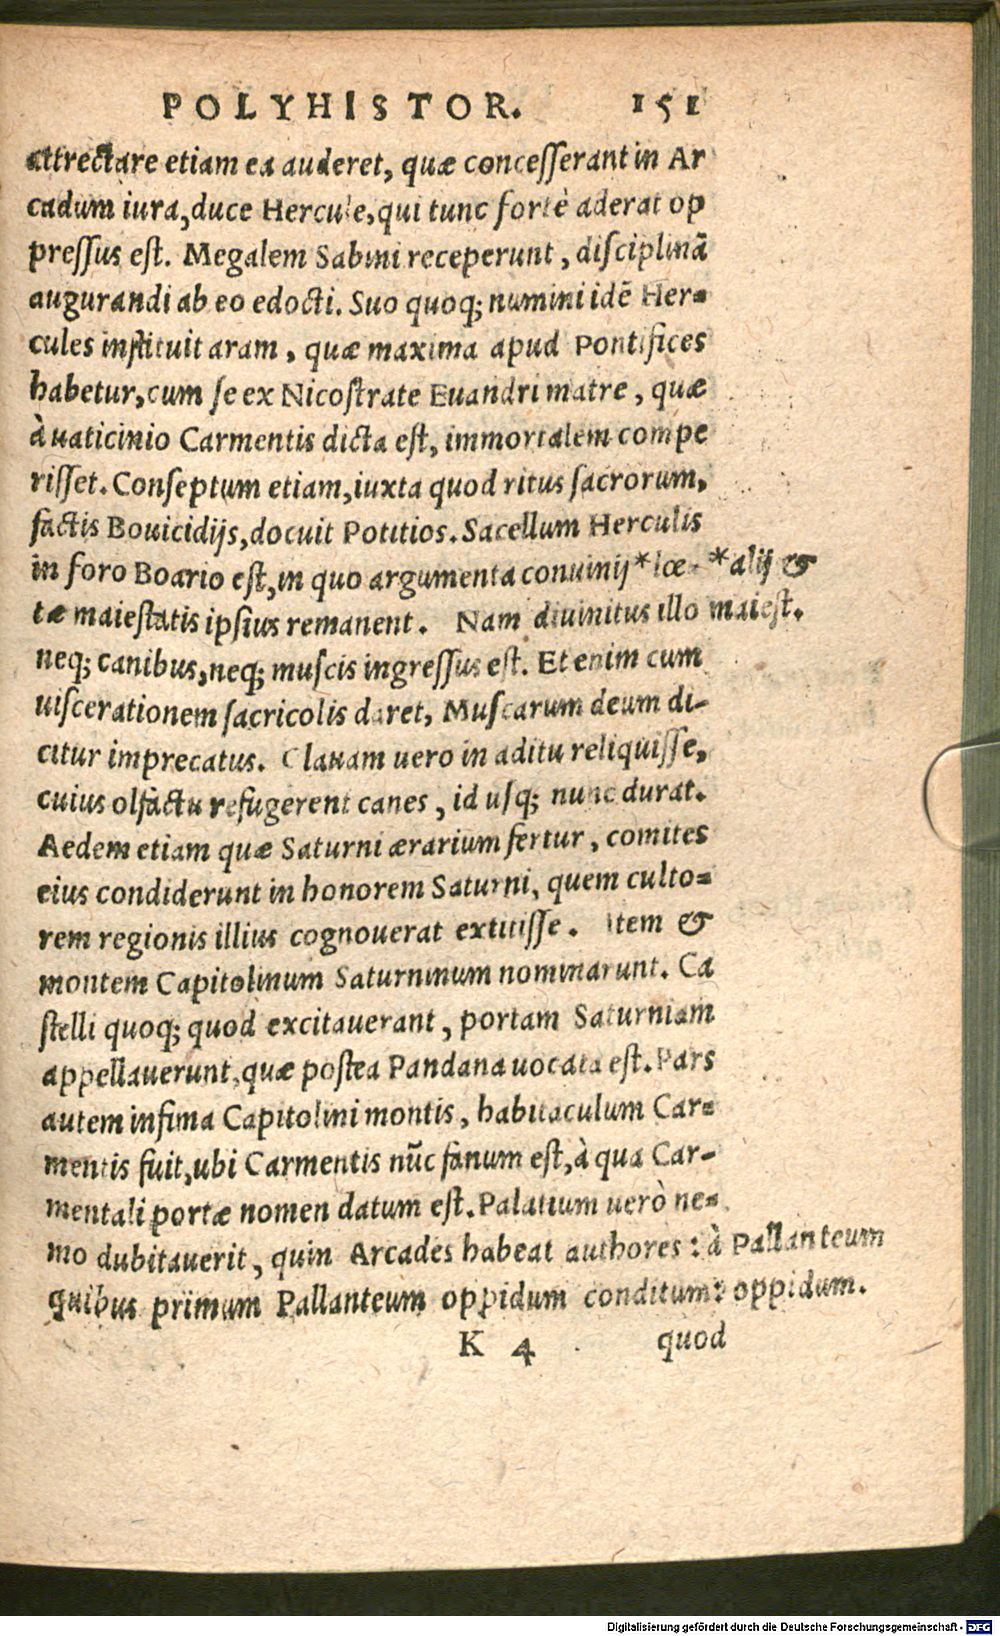 POLYHISTOR. 151
attrectare etiam ea auderet, quæ concesserant in Ar
cadum iura, duce Hercule, qui tunc fortè aderat op
pressus est. Megalem Sabini receperunt, disciplinā
augurandi ab eo edocti. Suo quoq; numini idē Her=
cules instituit aram, quæ maxima apud Pontifices
habetur, cum se ex Nicostrate Euandri matre, quæ
à uaticinio Carmentis dicta est, immortalem compe
risset. Conseptum etiam, iuxta quod ritus sacrorum,
factis Bouicidijs, docuit Potitios. Sacellum Herculis
in foro Boario est, in quo argumenta conuiuij *læ- *alij &
tæ maiestatis ipsius remanent. Nam diuinitus illo maiest.
neq; canibus, neq; muscis ingressus est. Et enim cum
uiscerationem sacricolis daret, Muscarum deum di-
citur imprecatus. Clauam uero in aditu reliquisse,
cuius olfactu refugerent canes, id usq; nunc durat.
Aedem etiam quæ Saturni ærarium fertur, comites
eius condiderunt in honorem Saturni, quem culto=
rem regionis illius cognouerat extitisse. Item &
montem Capitolinum Saturninum nominarunt. Ca
stelli quoq; quod excitauerant, portam Saturniam
appellauerunt, quæ postea Pandana uocata est. Pars
autem infima Capitolini montis, habitaculum Car=
mentis fuit, ubi Carmentis nūc fanum est, à qua Car-
mentali portæ nomen datum est. Palatium uerò ne=
mo dubitauerit, quin Arcades habeat authores: à Pallanteum
quibus primum Pallanteum oppidum conditum: oppidum.
K 4 quod
Digitalisierung gefördert durch die Deutsche Forschungsgemeinschaft - DFG